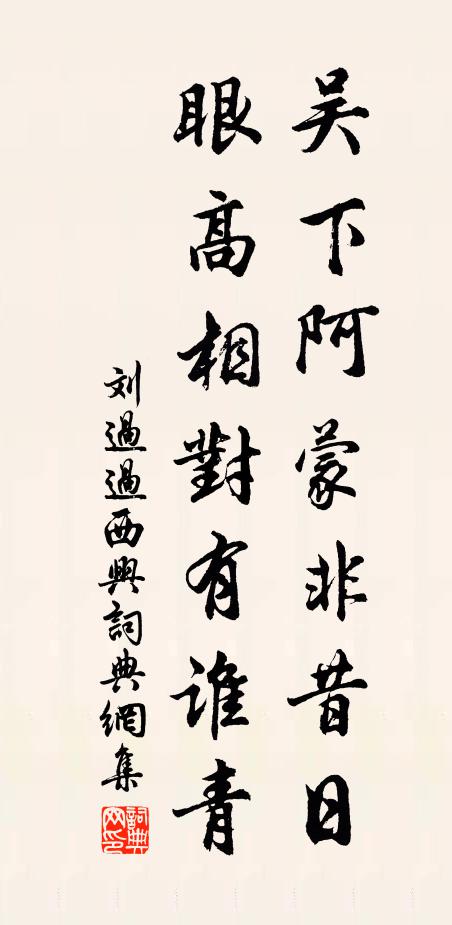 吴下阿蒙非昔日
眼高相對有誰青
刘過過西興詞典網集
詞典網印